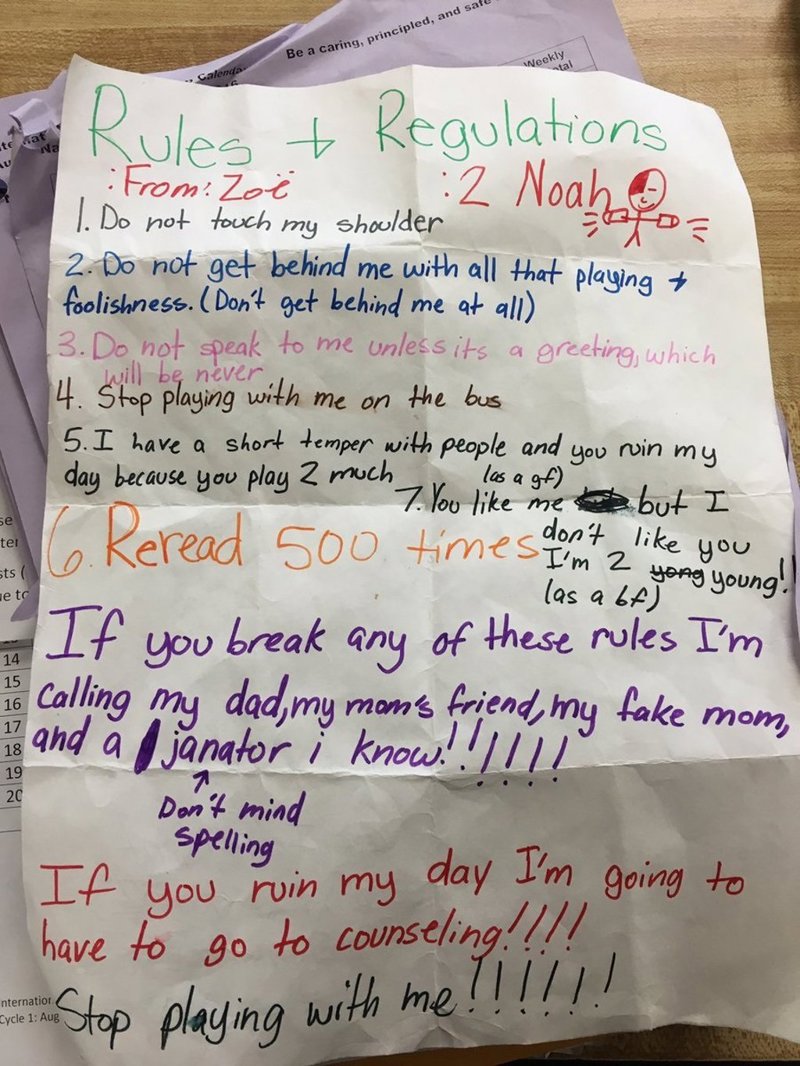 Be a caring, principled, and safe
Weekly
Calenda
Rules + Regulations
:From: Zoë :2 Noah
1. Do not touch my shoulder
2. Do not get behind me with all that playing +
foolishness. (Don't get behind me at all)
3. Do not speak to me unless its a greeting, which
will be never
4. Stop playing with me on the bus
5. I have a short temper with people and you ruin my
day because you play 2 much
6. Reread 500 times
(as a gf)
7. You like me but I
don't like you
I'm 2 yong young!!
(as a bf)
If you break any of these rules I'm
calling my dad, my mom's friend, my fake mom,
and a janator i know!!!!!!!
Don't mind
spelling
If you ruin my day I'm going to
have to go to counseling!!!!
Stop playing with me!!!!!!!
14
15
16
17
18
19
20
Cycle 1: Aug